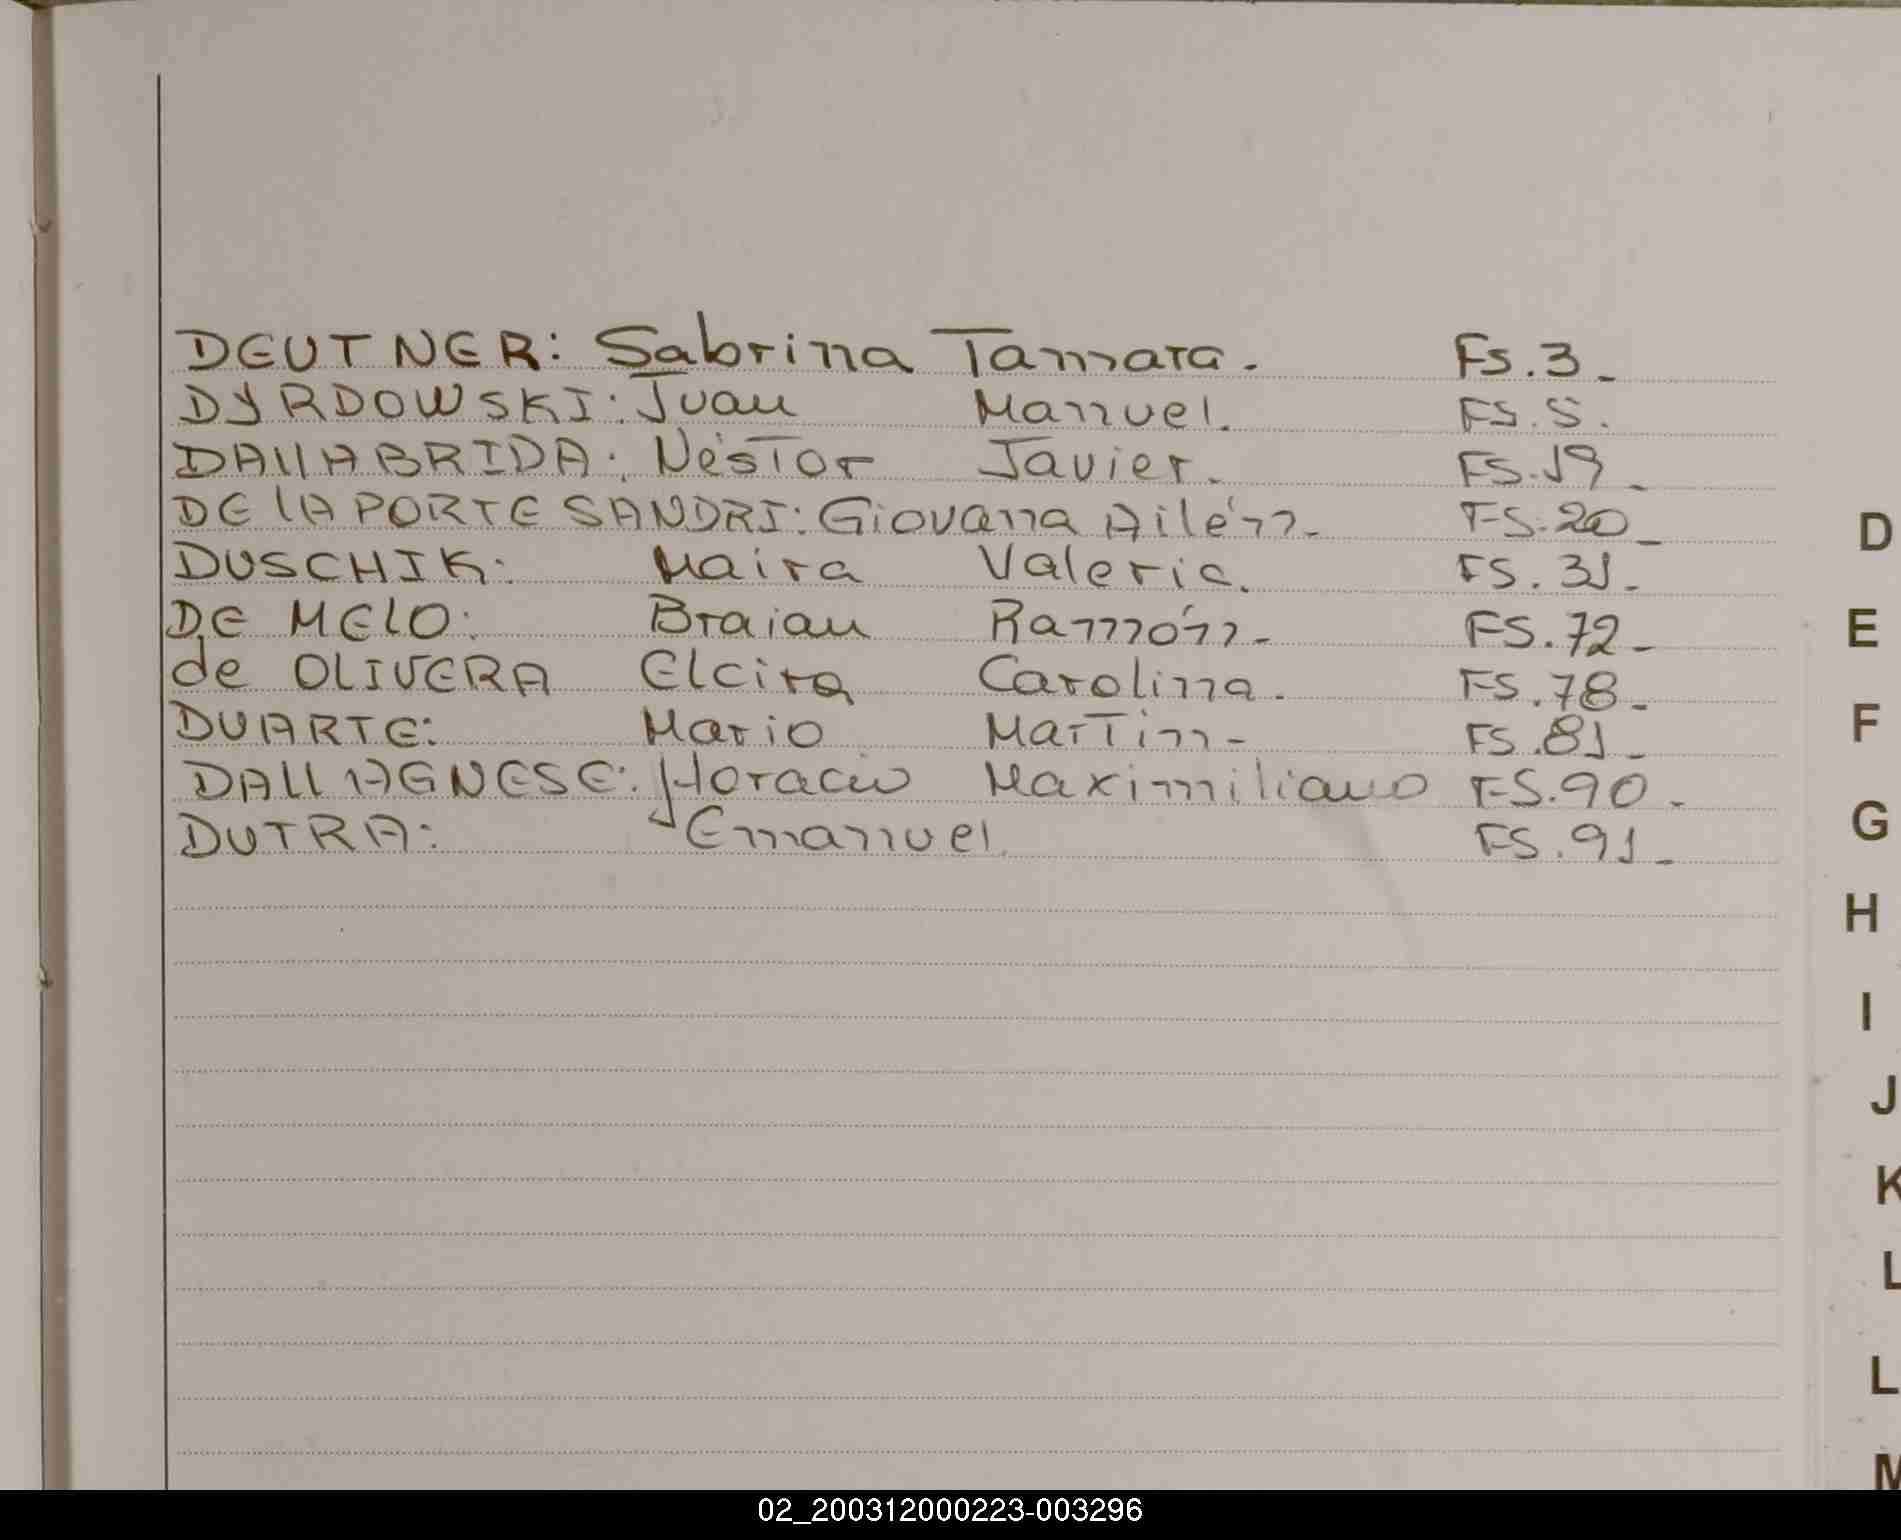 DEUTNER: Sabrina Tamara. Fs. 3_
DYRDOWSKI: Juan Manuel. FS. 5.
DAllABRIDA: Néstor Javier. FS. 19_
DE lA PORTE SANDRI: Giovana Ailén_ FS. 20_
DUSCHIK: Maira Valeria. FS. 31_
DE MElO: Braian Ramón_ FS. 72_
de OLIVERA Elcira Carolina. FS. 78_
DUARTE: Mario Martin_ FS. 81_
DAll AGNESE: Horacio Maximiliano FS. 90_
DUTRA: Emanuel. FS. 91_
D
E
F
G
H
I
J
K
L
L
M
02_200312000223-003296